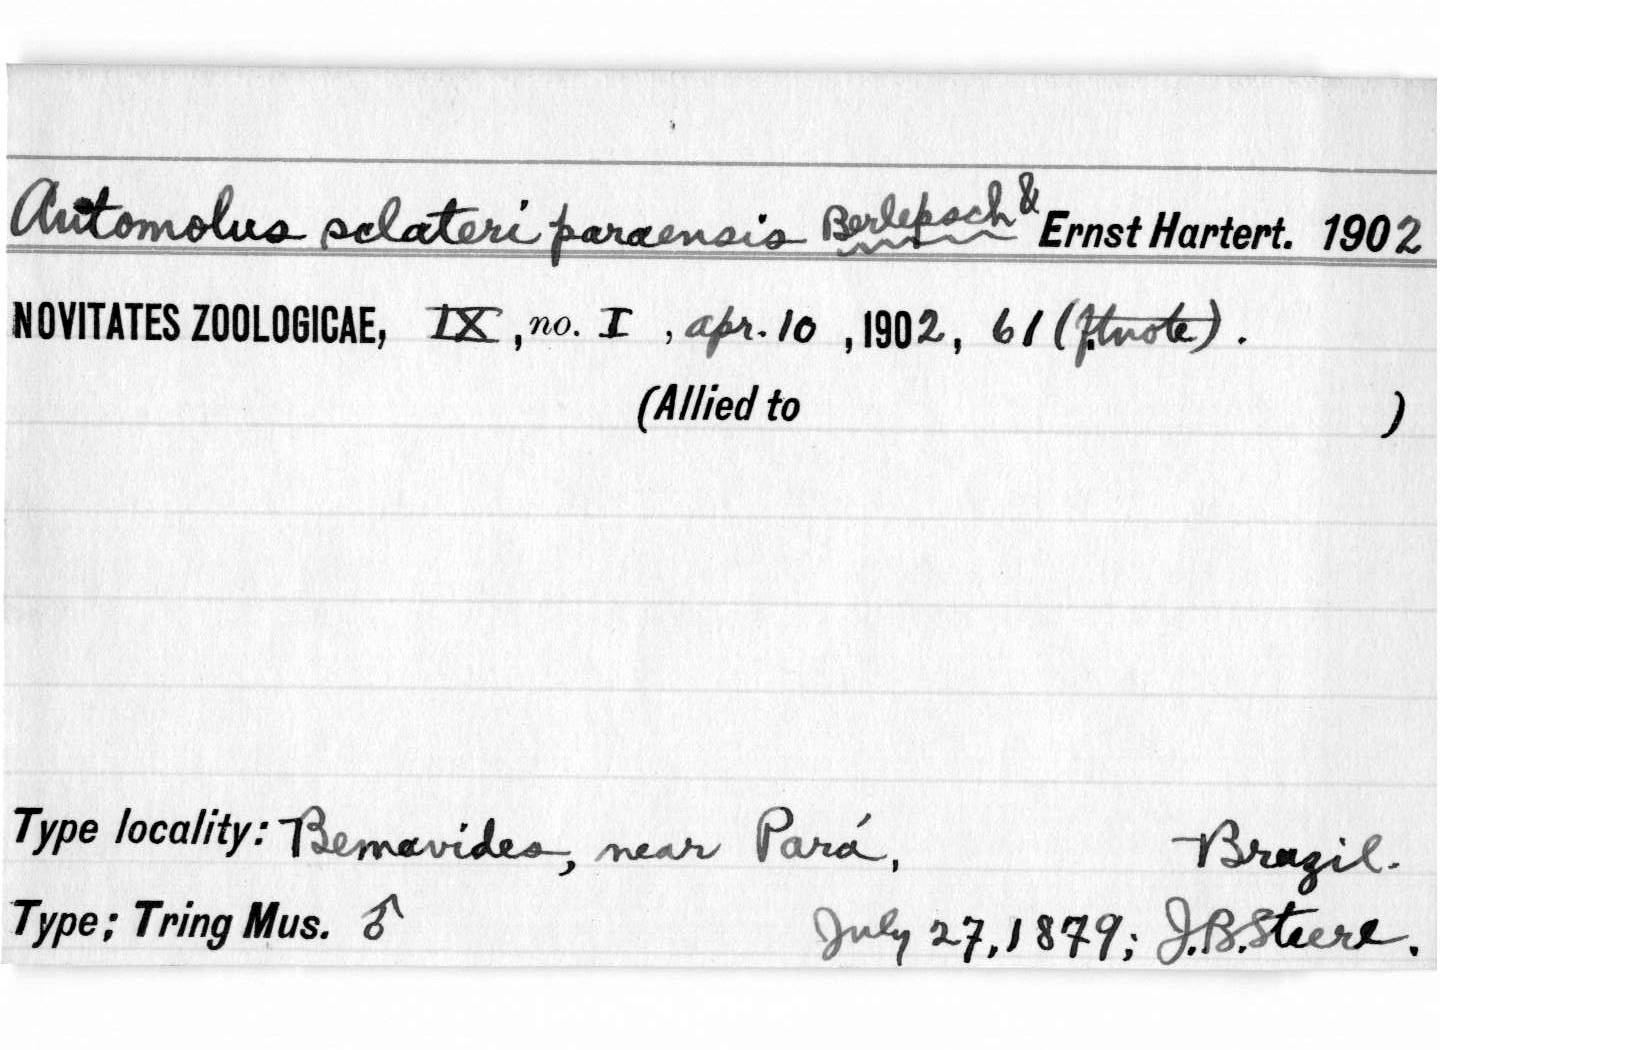 Automolus sclateri paraensis Berlepsch & Ernst Hartert. 1902
NOVITATES ZOOLOGICAE, IX, no. I, Apr. 10, 1902, 61 (ftnote).
(Allied to )
Type locality: Bemavides, near Pará, Brazil.
Type; Tring Mus. ♂ July 27, 1879; J.B.Steere.